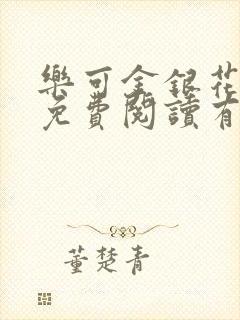 樂可金銀花
免費閱讀有
董楚青